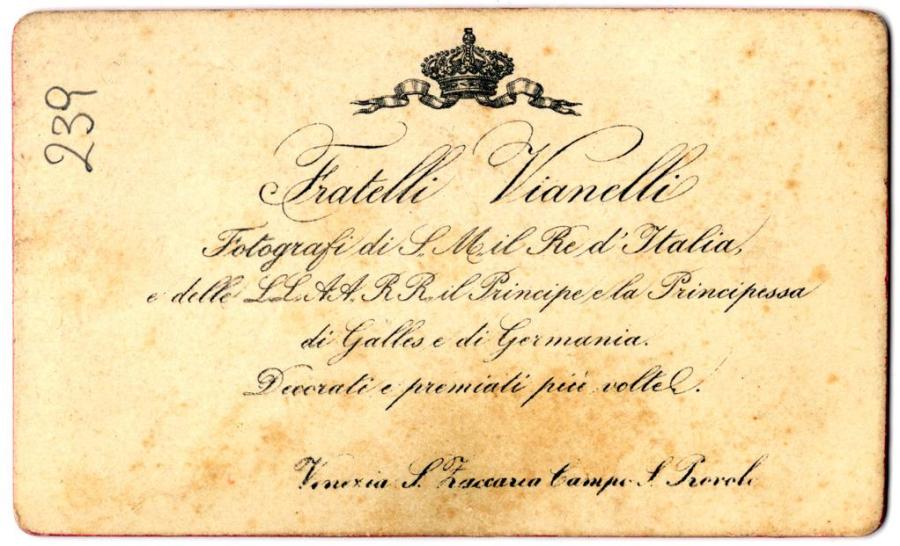 239
Fratelli Vianelli
Fotografi di S. M. il Re d'Italia,
e delle LL. AA. RR. il Principe e la Principessa
di Galles e di Germania.
Decorati e premiati più volte.
Venezia S. Zaccaria Campo S. Provolo